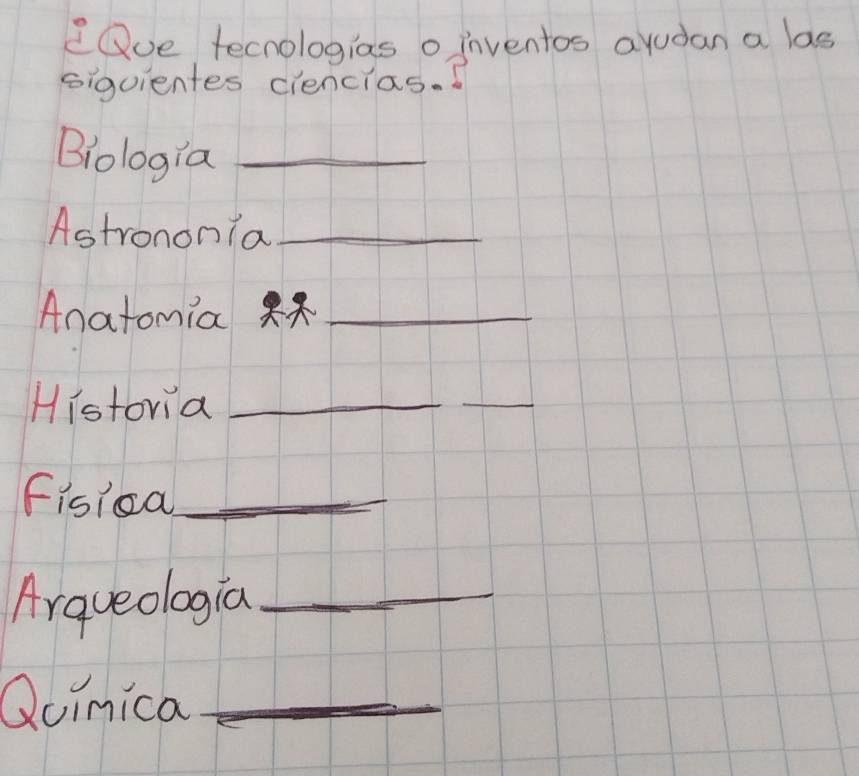 ¿Que tecnologías o inventos ayudan a las
siguientes ciencias.?
Biología
Astrononía
Anatomía
Historia
Física
Arqueología
Química